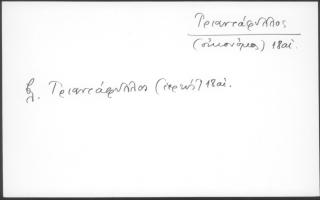 Τριαντάφυλλος
(οἰκονόμος) 18αἰ.
βλ. Τριαντάφυλλος (ἱερεύς) 18αἰ.